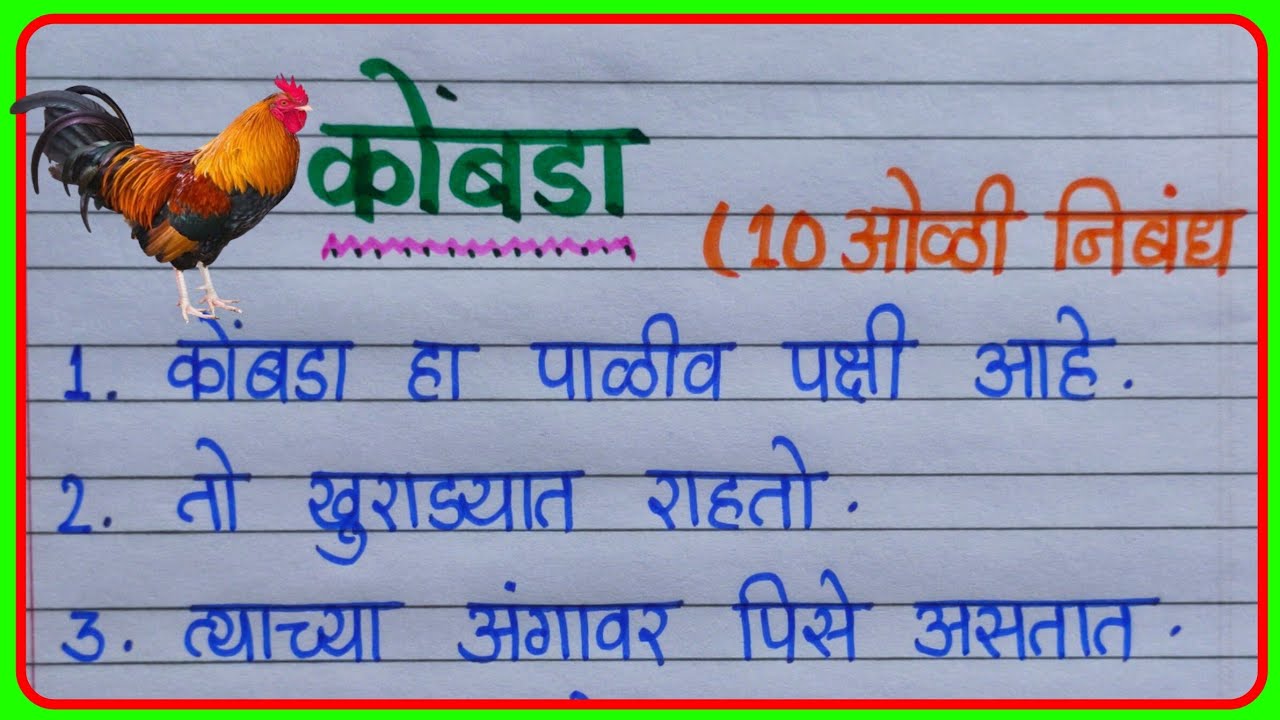 कोंबडा
(10 ओळी निबंध
1. कोंबडा हा पाळीव पक्षी आहे.
2. तो खुराड्यात राहतो.
3. त्याच्या अंगावर पिसे असतात.